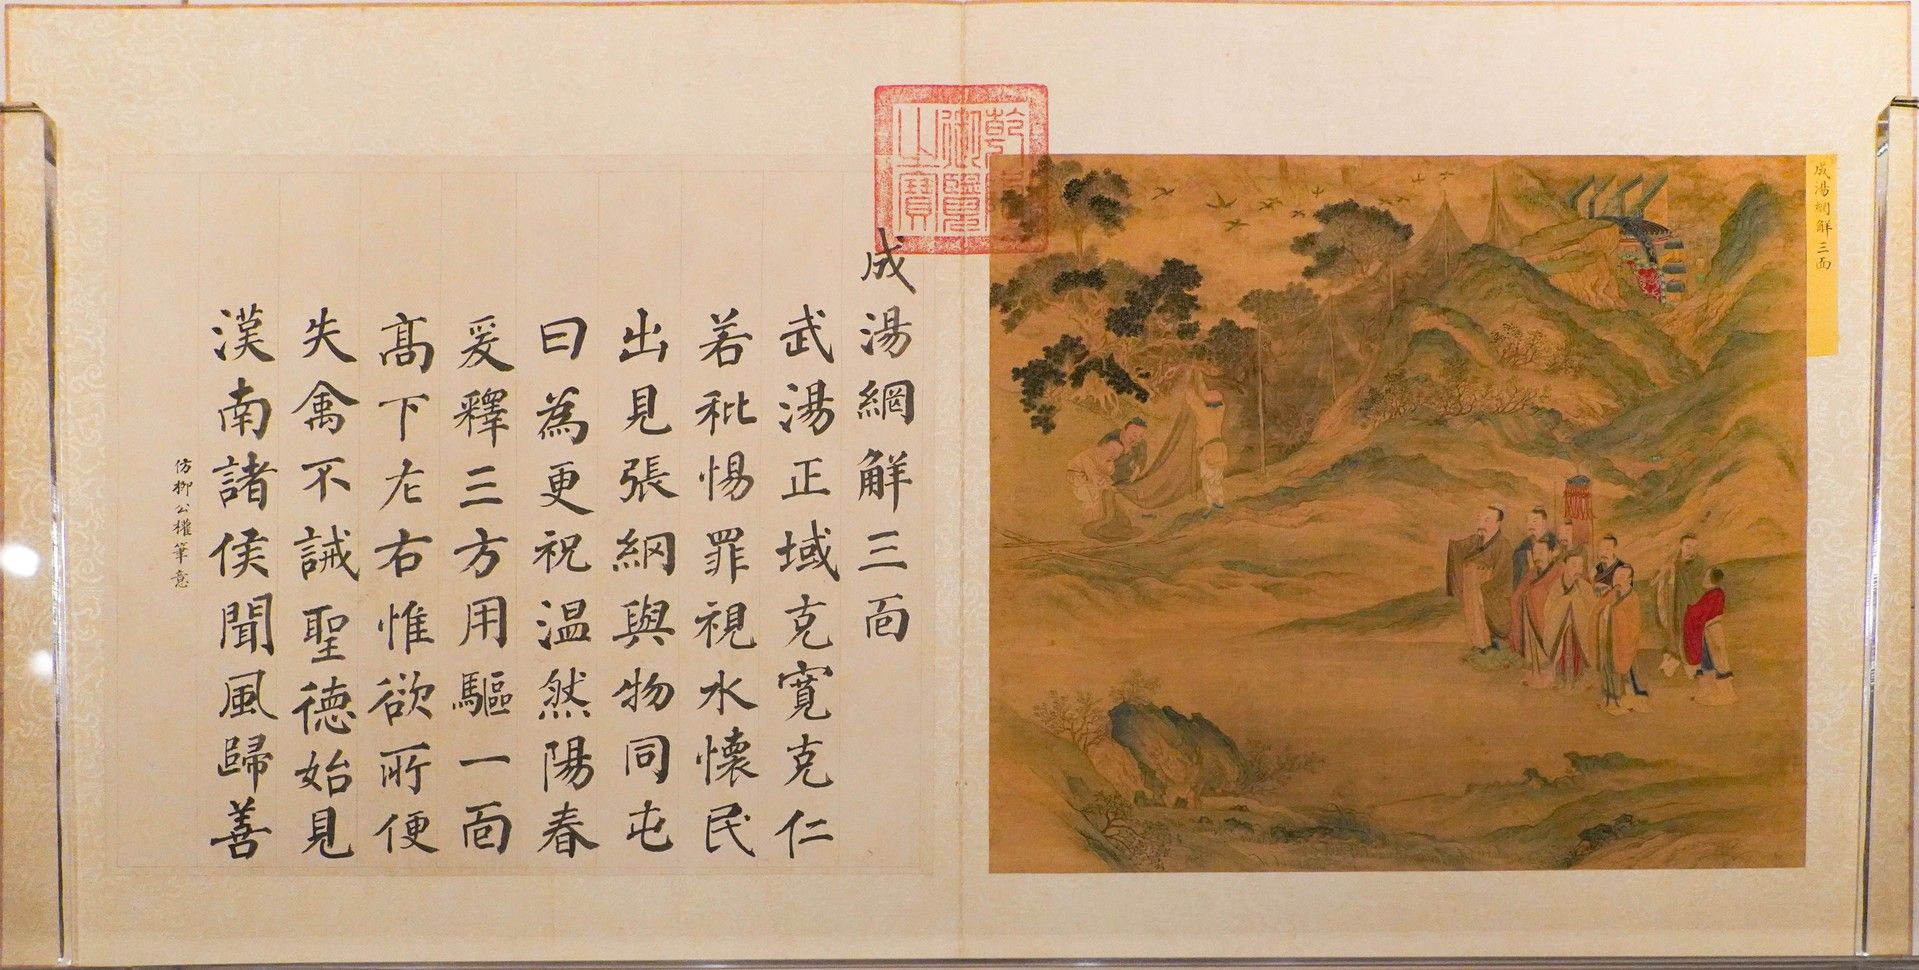 成湯網解三面
乾隆御覽之寶
成湯網解三面
武湯正域克寬克仁
若秕惕罪視水懷民
出見張網與物同屯
曰為更祝温然陽春
爰釋三方用驅一面
髙下左右惟欲所便
失禽不誡聖德始見
漢南諸侯聞風歸善
仿柳公權筆意